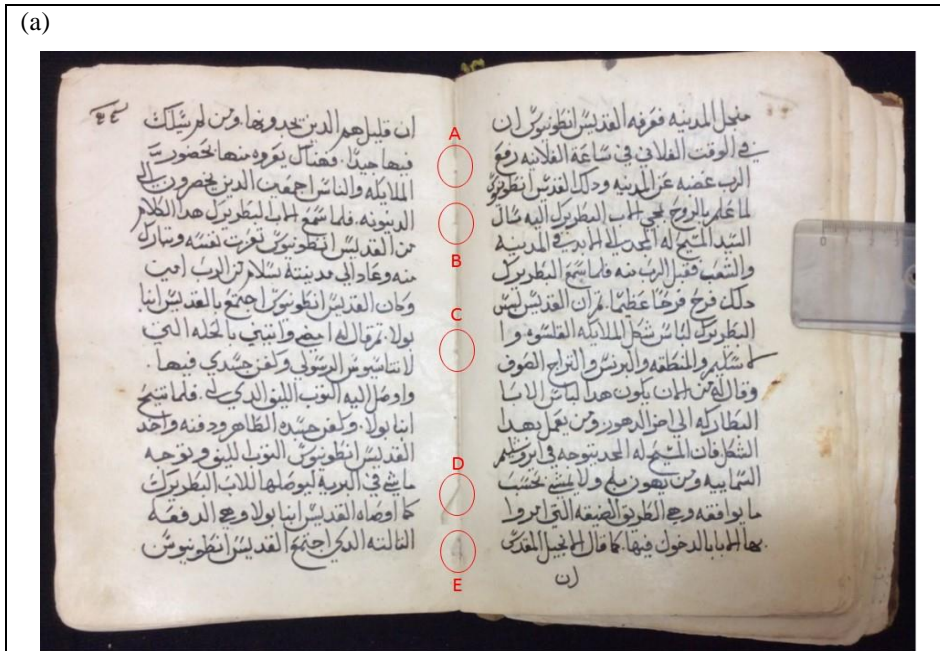 (a)
من اجل المدينه فعرفه القديس انطونيوس ان
في الوقت الفلاني في ساعة الفلانيه رفع
الرب غضبه عن المدينه ودلك القديس انطونيوس
لما علم بالروح بمجي الاب البطريرك اليه سال
السيد المسيح له المجد الي الابد في المدينه
والشعب فقبل الرب منه فلما سمع البطريرك
دلك فرح فرحًا عظيمًا. ثم ان القديس لبس
البطريرك لباس شكل الملايكه القلنسوه وا
لاسكيم والمنطقه والبرنس الصوف
وقال له من الان يكون هدا لباس الابا
البطاركه الي اخر الدهور ومن يعمل بهدا
الشكل فان المسيح له المجد يتوجه في ايروشليم
السماييه ومن يتهون ولا يمشي بحسب
ما يوافقه وهي الطريق الضيقه التي امروا
بها الابا بالدخول فيها. كما قال الانجيل المقدس
ان
0
ان قليل هم الدين يجدونها. ومن لم يسلك
فيها جيدًا. فهناك يعروه منها بحضور
الملايكه والناس اجمعين الدين يحضرون الي
الدينونه. فلما سمع الاب البطريرك هدا الكلام
من القديس انطونيوس تعزت نفسه وتبارك
منه وعاد الي مدينته بسلام من الرب امين
وكان القديس انطونيوس اجتمع بالقديس انبا
بولا. ثم قال له امضي واتيني بالحله التي
لاتناسيوس الرسولي وكفن جسدي فيها.
واوصل اليه التوب الليف الدي لي. فلما تنيح
انبا بولا. وكفن جسده الطاهر ودفنه واخد
القديس انطونيوس التوب الليف وتوجه
ماشي في البريه ليوصلها للاب البطريرك
كما اوصاه القديس انبا بولا وهي الدفعه
التالته الدي اجتمع القديس انطونيوس
A
B
C
D
E